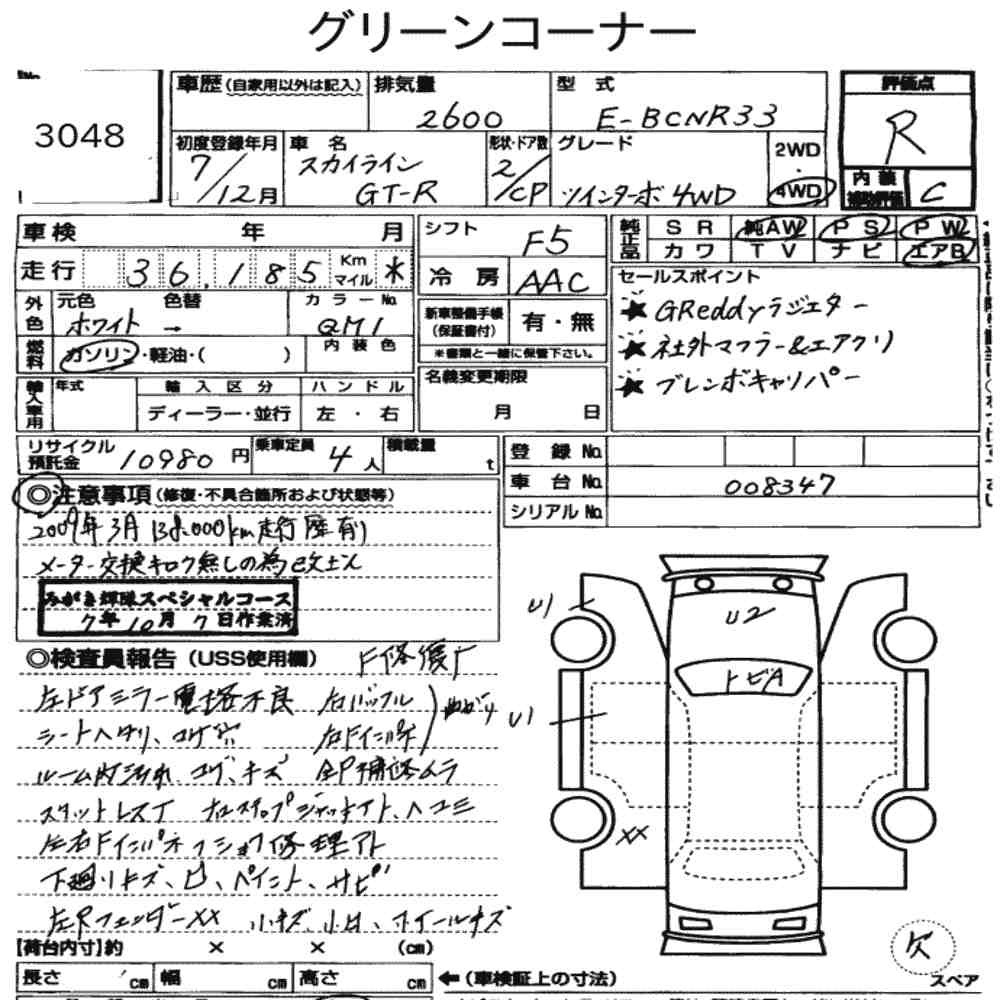 グリーンコーナー
3048
車歴(自家用以外は記入) 排気量 2600 型式 E-BCNR33 評価点 R
初度登録年月 7/12月 車名 スカイライン GT-R 形状・ドア数 2/CP グレード ツインターボ4WD 2WD 4WD
内装補助評価 C
車検 年 月 シフト F5 純正品 SR 純AW PS PW
カワ TV ナビ エアB
走行 36,185 Km マイル * 冷房 AAC
セールスポイント
外色 元色 ホワイト 色替 → カラーNo. QM1
新車整備手帳(保証書付) 有・無
※書類と一緒に保管下さい。
★ GReddyラジエター
★ 社外マフラー&エアクリ
★ ブレンボキャリパー
燃料 ガソリン・軽油・( ) 内装色
輸入車用 年式 輸入区分 ハンドル
ディーラー・並行 左・右
名義変更期限
月 日
リサイクル預託金 10980円 乗車定員 4人 積載量 t
登録No.
車台No. 008347
シリアルNo.
◎注意事項(修復・不具合箇所および状態等)
2009年3月 138,000km走行歴有り
メーター交換キロク無しの為改ざん
みがき輝隊スペシャルコース
7年10月7日作業済
◎検査員報告(USS使用欄) F修復歴
左ドアミラー電格不良 右バッフル
シートヘタリ、コゲ穴 右Fインサイド
ルーム内汚れ、コゲ、キズ 全P補修ムラ
スタットレスT
下廻りキズ、凹、ペイント、サビ
左RフェンダーXX 小キズ、小凹、ホイールキズ
U1
U2
トビA
U1
XX
欠
スペア
【荷台内寸】約 × × (cm)
長さ cm 幅 cm 高さ cm ←(車検証上の寸法)